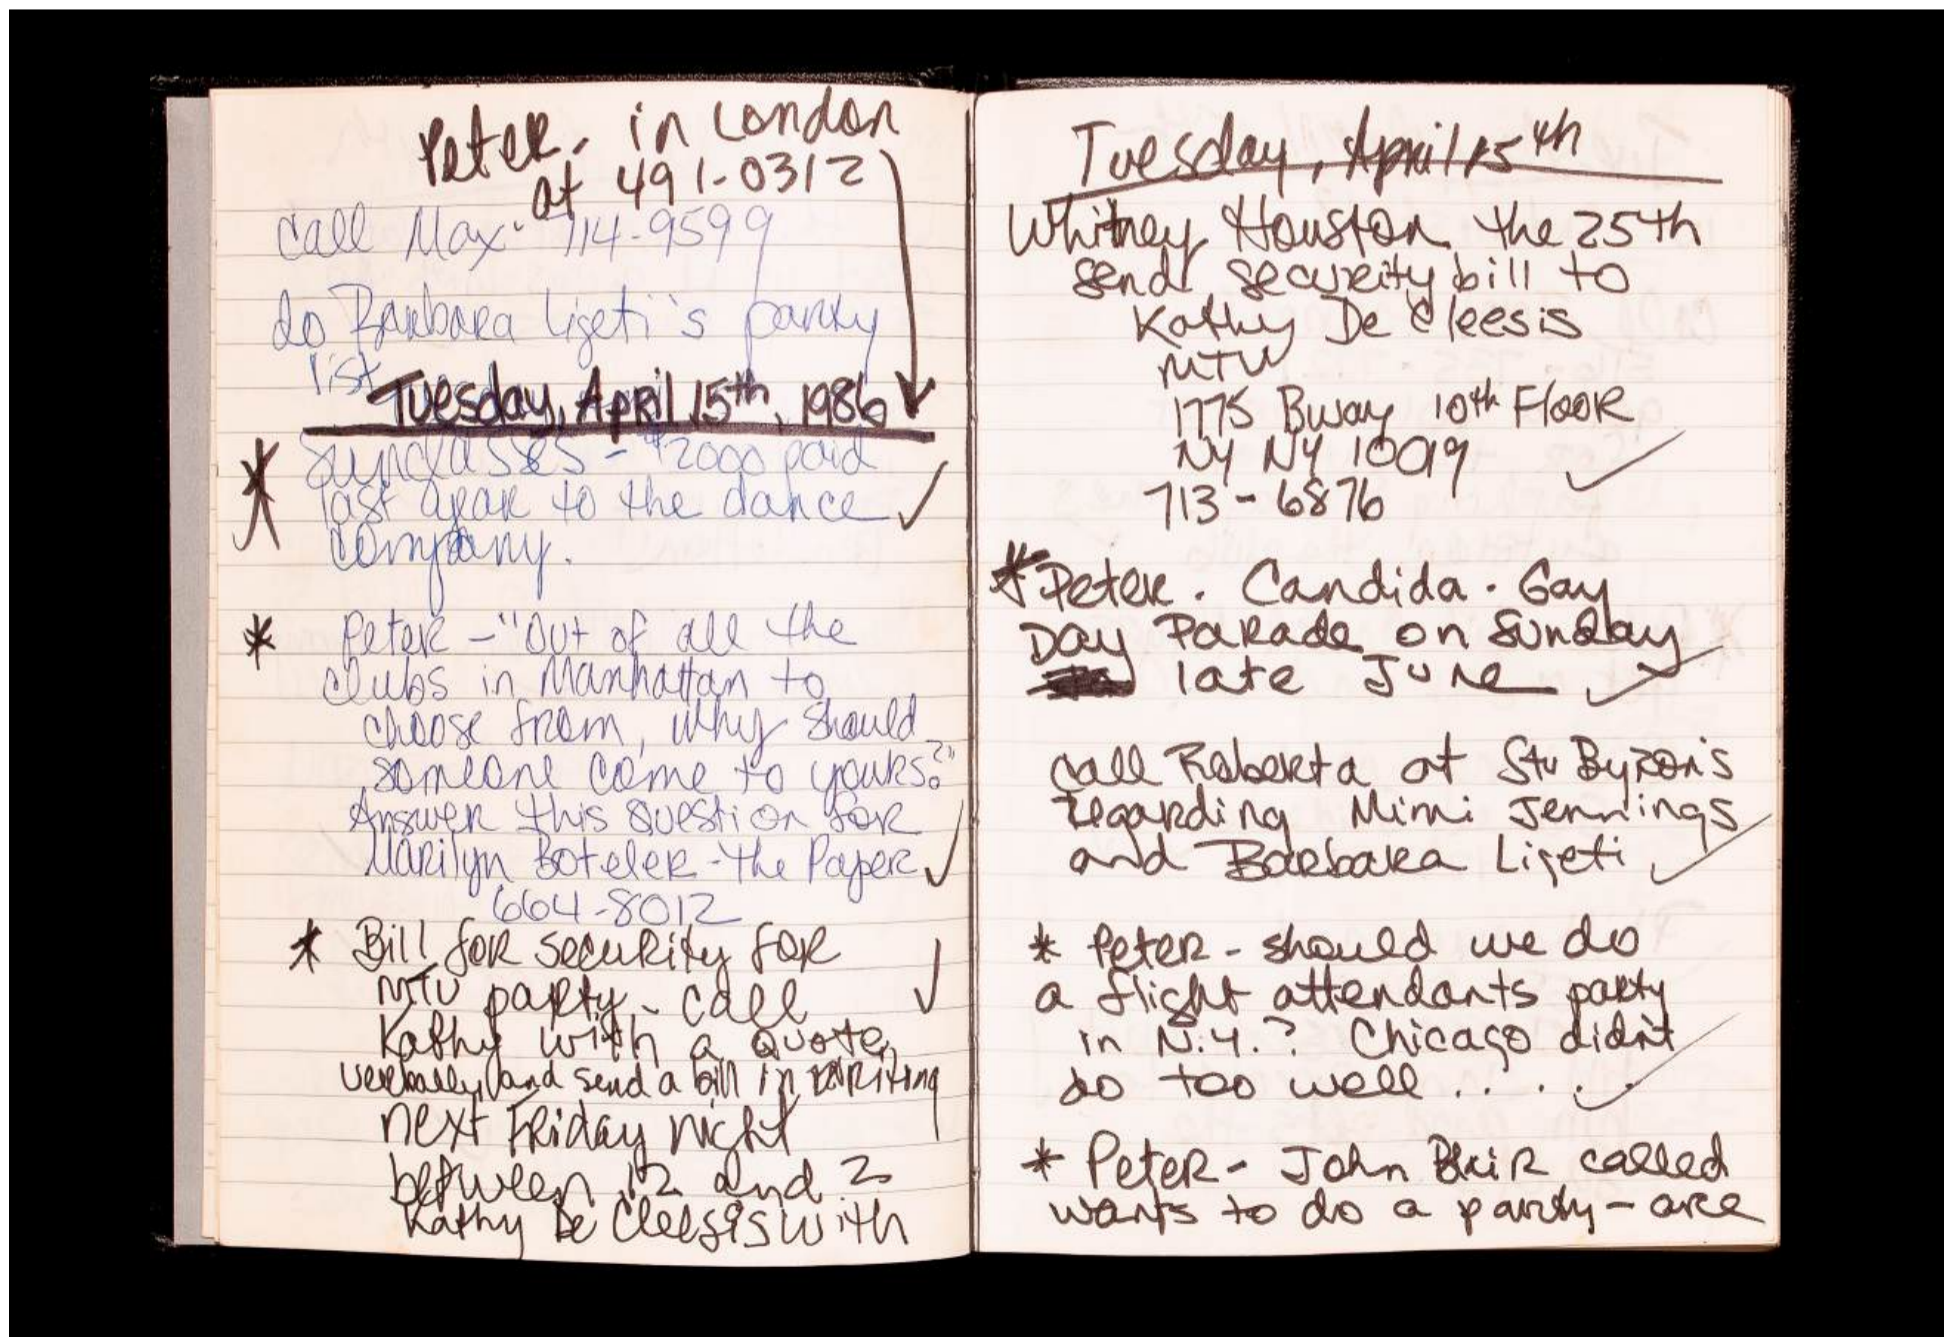 Peter - in London
at 491-0312
call Max - 714-9599
do Barbara Ligeti's party
list
Tuesday, April 15th, 1986
* Sunglasses - $2000 paid
last year to the dance
company.
* Peter - "Out of all the
clubs in Manhattan to
choose from, why should
someone come to yours?"
Answer this question for
Marilyn Boteler - the Paper
664-8012
* Bill for security for
MTV party - call
Kathy with a quote,
verbally, and send a bill in writing
next Friday night
between 12 and 2
Kathy De Cleesis with
Tuesday, April 15th
Whitney Houston the 25th
send security bill to
Kathy De Cleesis
MTV
1775 Bway 10th Floor
NY NY 10019
713-6876
* Peter. Candida. Gay
Day Parade on Sunday
late June
call Roberta at Stu Byron's
regarding Mimi Jennings
and Barbara Ligeti
* Peter - should we do
a flight attendants party
in N.Y.? Chicago didn't
do too well . . . .
* Peter - John Blair called
wants to do a party - are